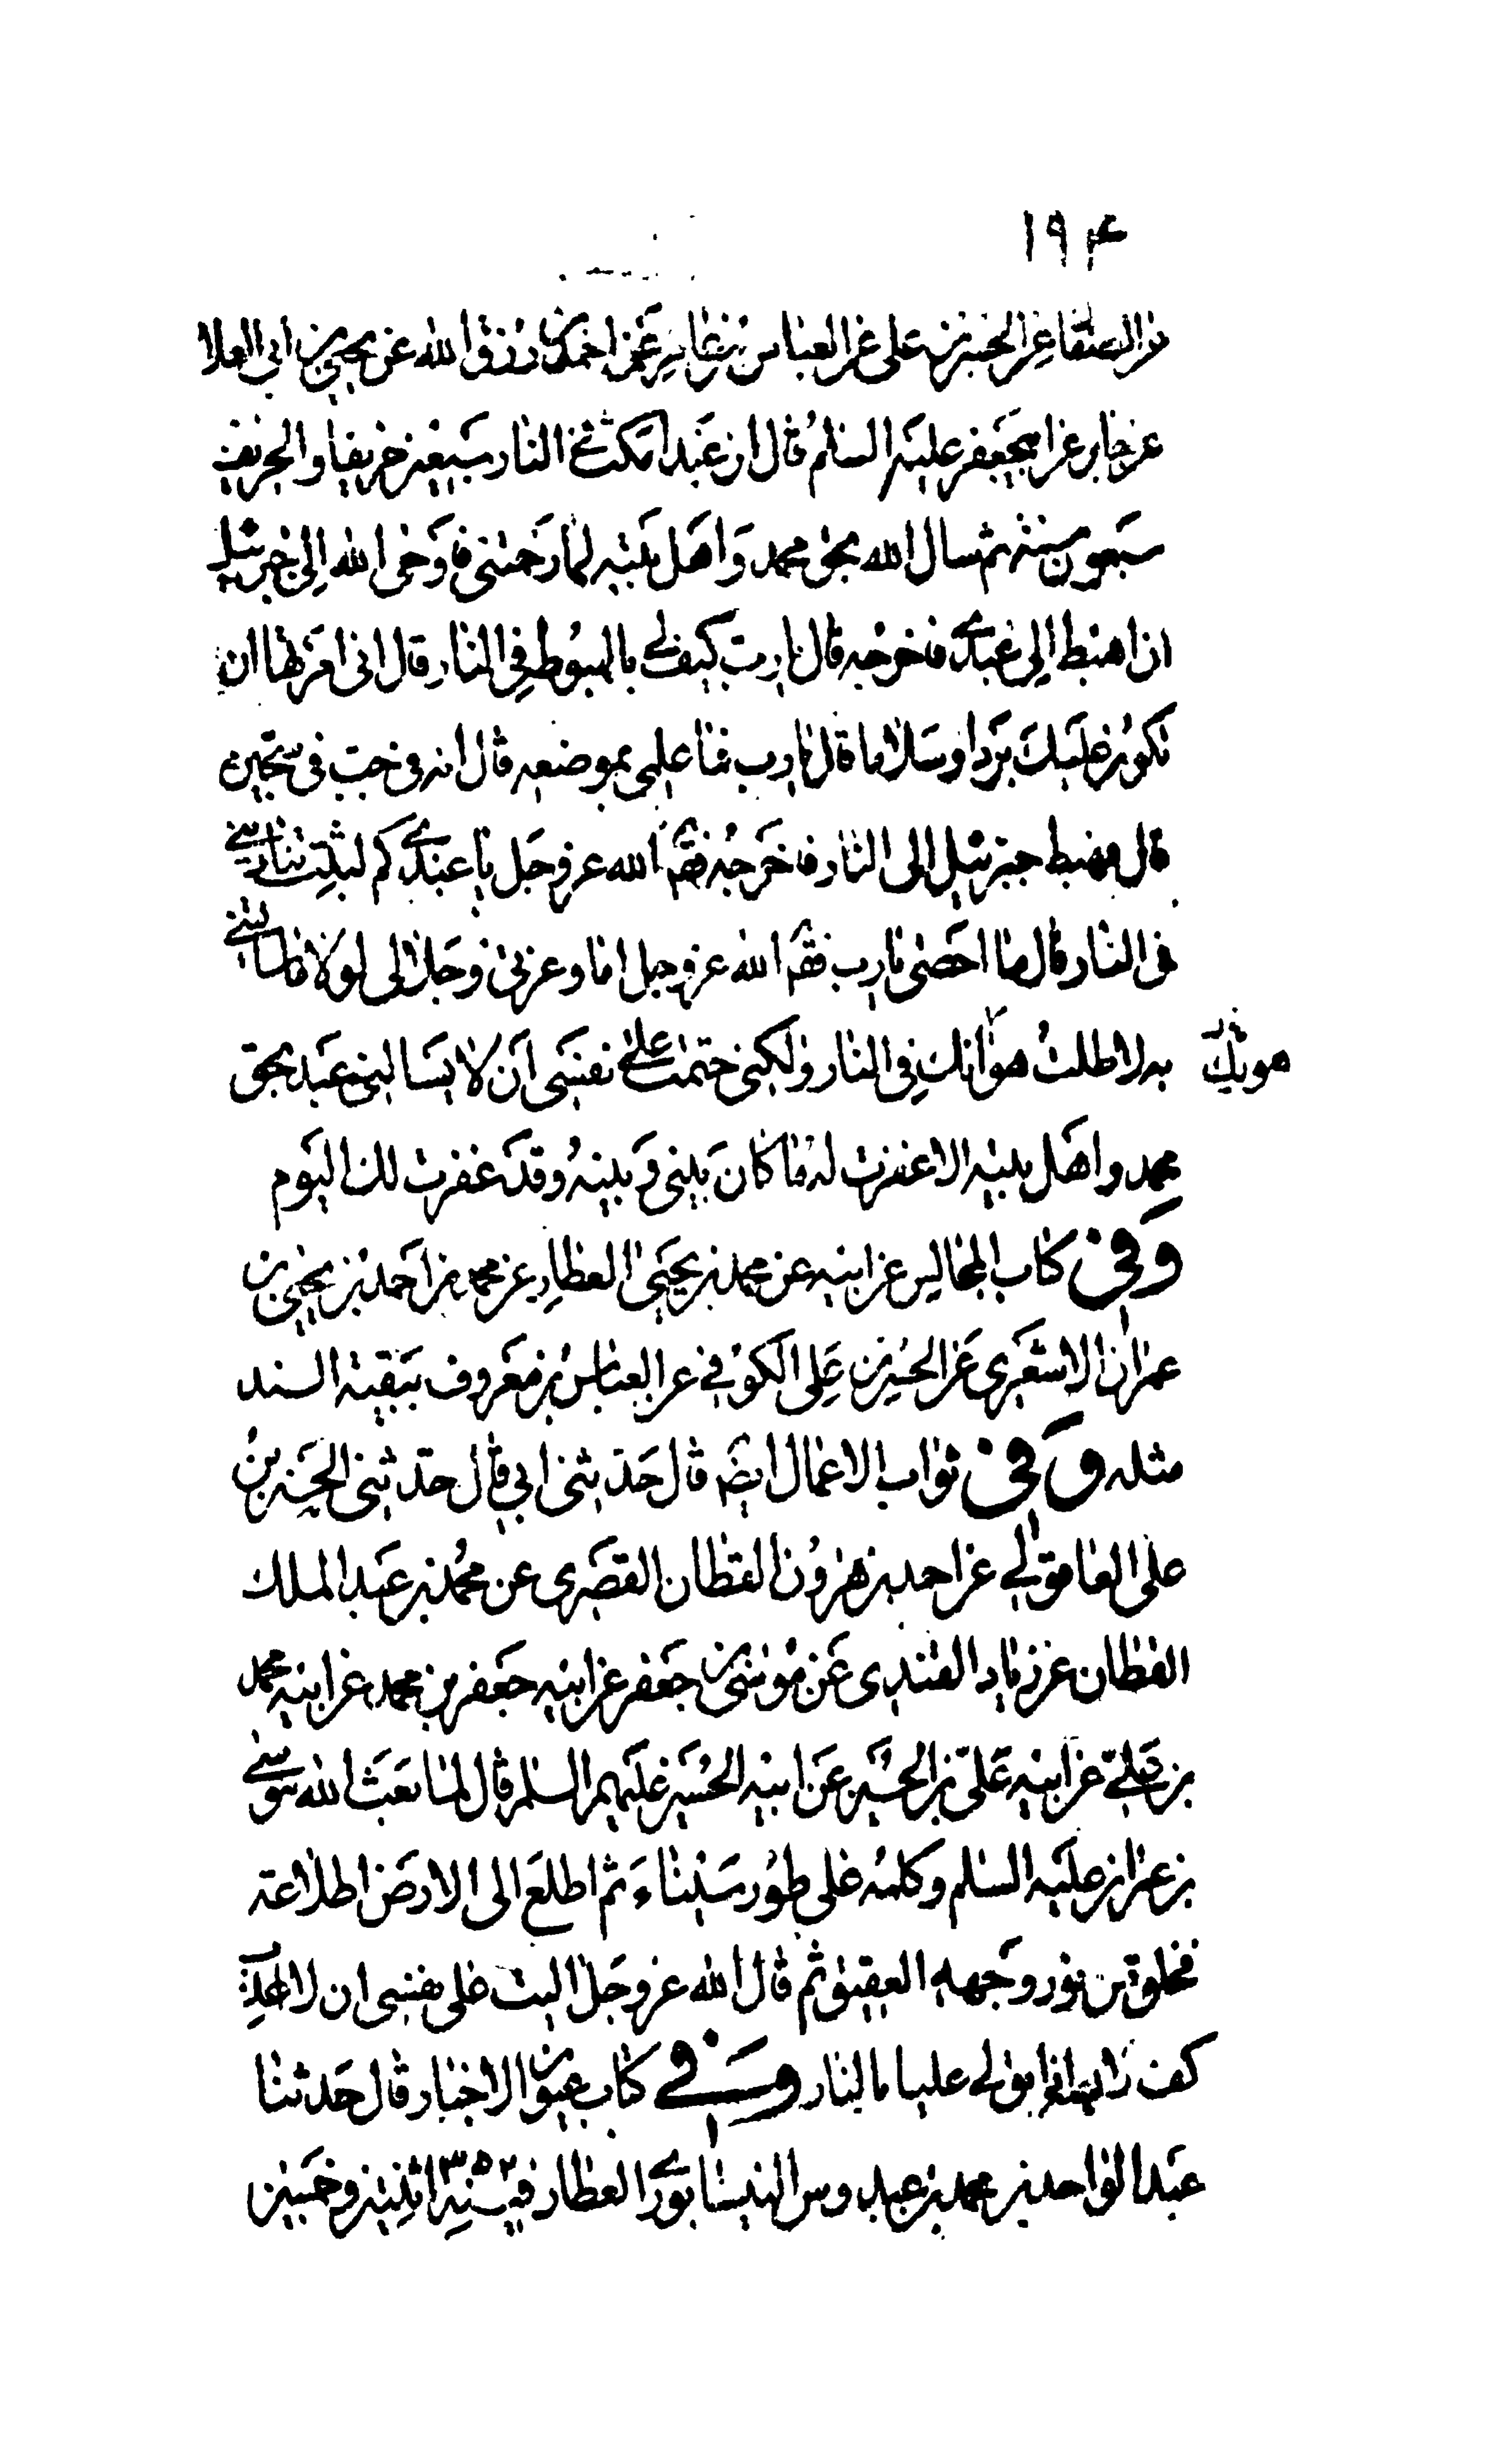 ١٩۴
بن الصقا عن الحسن بن على عن العباس بن عامر عن احمد بن رزق الله عن يحيى بن ابى العلا
عن جابر عن ابيجعفر عليه السلم قال ان عبدا مكث فى النار سبعين خريفا والخريف
سبعون سنة ثم سال الله بحق محمد واهل بيته لما رحمتنى فاوحى الله الى جبرئيل
ان اهبط الى عبدى فاخرجه قال يا رب كيف لى بالهبوط فى النار قال انى امرتها ان
تكون عليك بردا وسلاما قال يا رب فما علمى بموضعه قال انه فى جب فى سجين
قال فهبط جبرئيل الى النار فاخرجه فقال الله عز وجل يا عبدى كم لبثت تناشدنى
فى النار قال ما احصى يا رب فقال الله عز وجل اما وعزتى وجلالى لولا ما سالتنى
به لاطلت هوانك فى النار ولكنى حتمت على نفسى ان لا يسالنى عبد بحق
محمد واهل بيته الا غفرت له ما كان بينى وبينه وقد غفرت لك اليوم
وفى كتاب المجالس عن ابيه عن محمد بن يحيى العطار عن محمد بن احمد بن يحيى بن
عمران الاشعرى عن الحسين بن على الكوفى عن العباس بن معروف ببقية السند
مثله وفى ثواب الاعمال ايضا قال حدثنى ابى قال حدثنى الحسين بن
على العاقولى عن احمد بن هرون القطان القصرى عن محمد بن عبد الملك
القطان عن زياد القندى عن موسى بن جعفر عن ابيه جعفر بن محمد عن ابيه محمد
بن على عن ابيه على بن الحسين عن ابيه الحسين عليهم السلم قال لما بعث الله موسى
بن عمران عليه السلم وكلمه على طور سيناء ثم اطلع الى الارض اطلاعة
فخلق من نور وجهه العقيق ثم قال الله عز وجل اليت على نفسى ان لا اعذب
كف لابسه اذا تولى عليا بالنار وفى كتاب عيون الاخبار قال حدثنا
عبد الواحد بن محمد بن عبدوس النيسابورى العطار فى سنة ٣٥٢ اثنين وخمسين